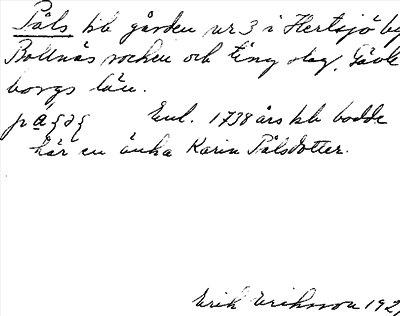 Påls kb gården nr 3 i Hertsjö by
Bollnäs socken och tingslag, Gävle
borgs län.
Enl. 1738 års kb bodde
här en änka Karin Pålsdotter.
Erik Eriksson 192